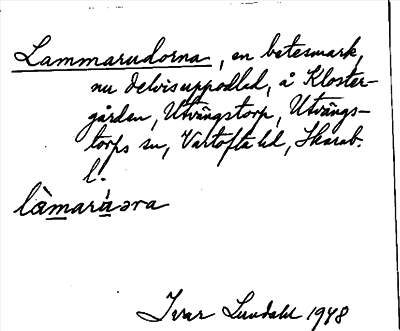 Lammarudorna, en betesmark,
nu delvis uppodlad, å Kloster-
gården, Utvängstorp, Utvängs-
torps sn, Vartofta hd, Skarab.
l.
làmaráәra
Ivar Lundahl 1948